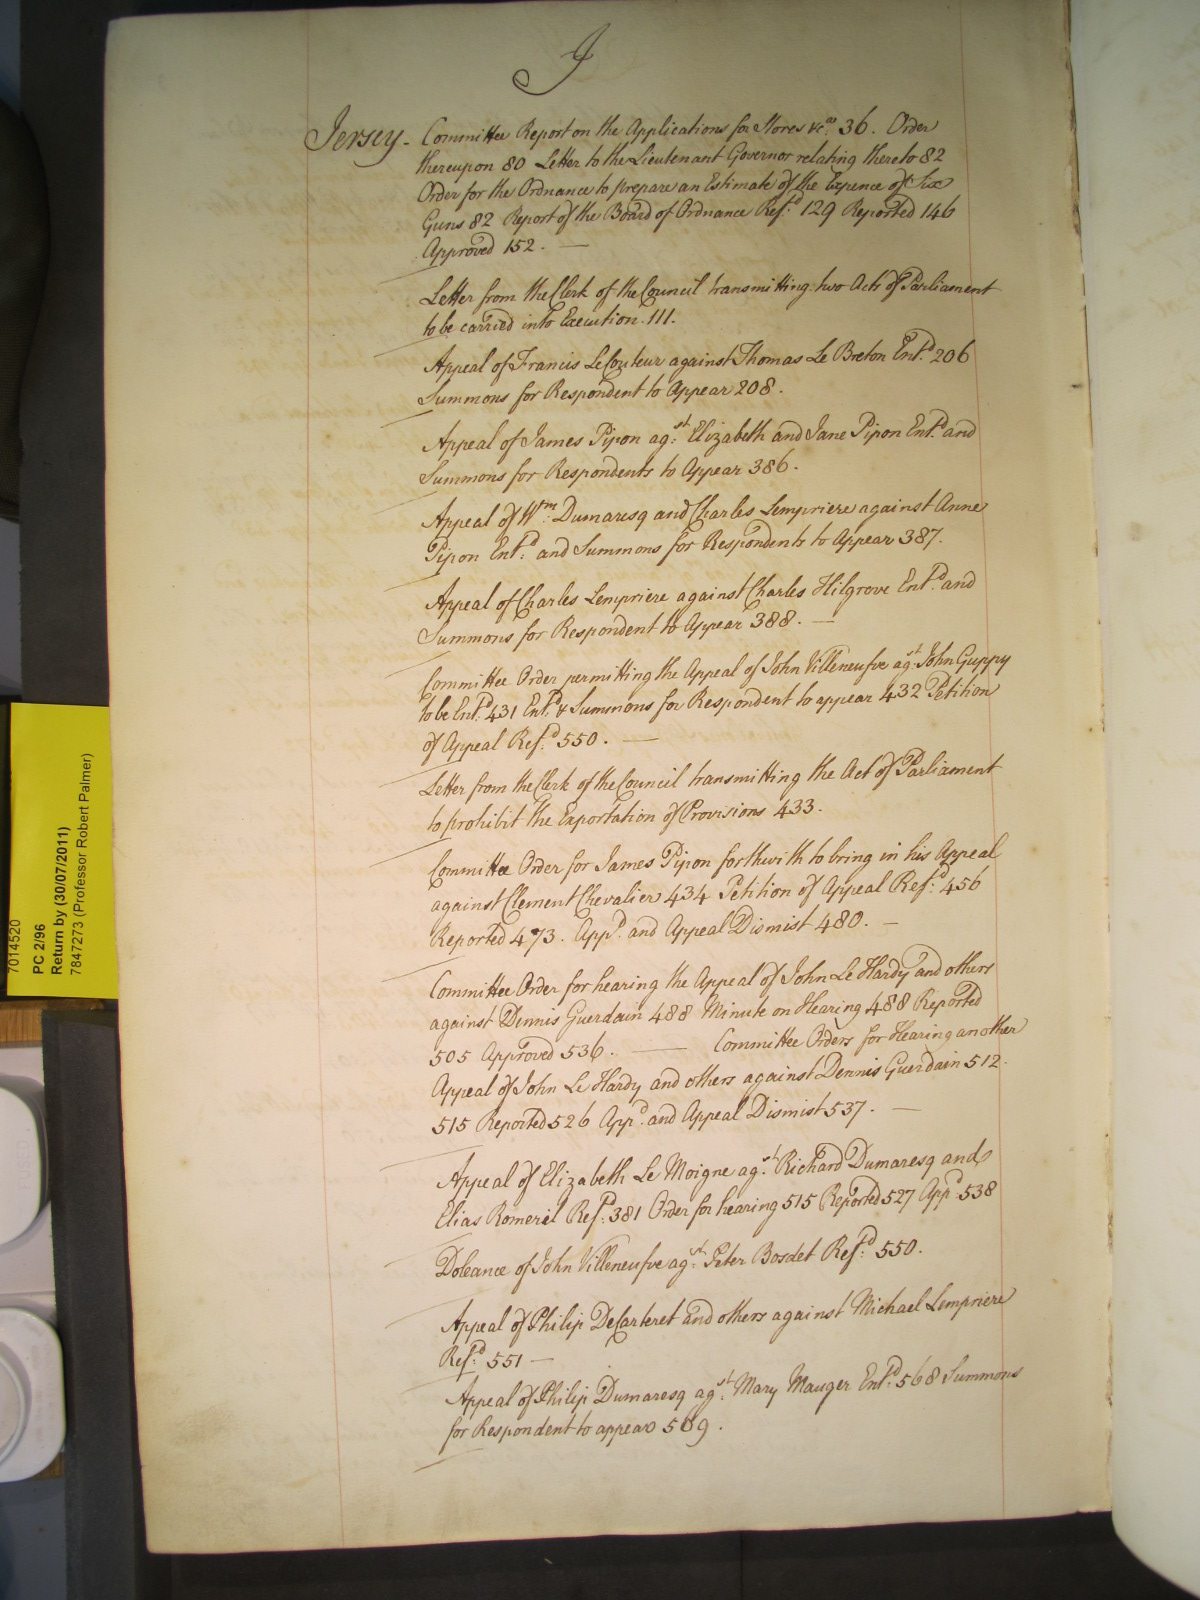 J
Jersey - Committee Report on the Applications for Stores &c.as 36. Order
thereupon 80 Letter to the Lieutenant Governor relating thereto 82
Order for the Ordnance to prepare an Estimate of the Expence of Six
Guns 82 Report of the Board of Ordnance Ref.d 129 Reported 146
Approved 152. —
Letter from the Clerk of the Council transmitting two Acts of Parliament
to be carried into Execution. 111.
Appeal of Francis LeCouteur against Thomas Le Breton Ent.d 206
Summons for Respondent to Appear 208.
Appeal of James Pipon ag.st Elizabeth and Jane Pipon Ent.d and
Summons for Respondents to Appear 386.
Appeal of W.m Dumaresq and Charles Lempriere against Anne
Pipon Ent.d and Summons for Respondents to Appear 387.
Appeal of Charles Lempriere against Charles Hilgrove Ent.d and
Summons for Respondent to Appear 388. —
Committee Order permitting the Appeal of John Villeneufve ag.st John Guppy
to be Ent.d 431 Ent.d & Summons for Respondent to appear 432 Petition
of Appeal Ref.d 550. —
Letter from the Clerk of the Council transmitting the Act of Parliament
to prohibit the Exportation of Provisions 433.
Committee Order for James Pipon forthwith to bring in his Appeal
against Clement Chevalier 434 Petition of Appeal Ref.d 456
Reported 473. App.d and Appeal Dismist 480. —
Committee Order for hearing the Appeal of John Le Hardy and others
against Dennis Guerdain 488 Minute on Hearing 488 Reported
505 Approved 536. — Committee Orders for Hearing another
Appeal of John Le Hardy and others against Dennis Guerdain 512.
515 Reported 526 App.d and Appeal Dismist 537. —
Appeal of Elizabeth Le Moigne ag.st Richard Dumaresq and
Elias Romeril Ref.d 381 Order for hearing 515 Reported 527 App.d 538
Doleance of John Villeneufve ag.st Peter Bosdet Ref.d 550.
Appeal of Philip DeCarteret and others against Michael Lempriere
Ref.d 551 —
Appeal of Philip Dumaresq ag.st Mary Mauger Ent.d 568 Summons
for Respondent to appear 569.
7014520
PC 2/96
Return by (30/07/2011)
7847273 (Professor Robert Palmer)